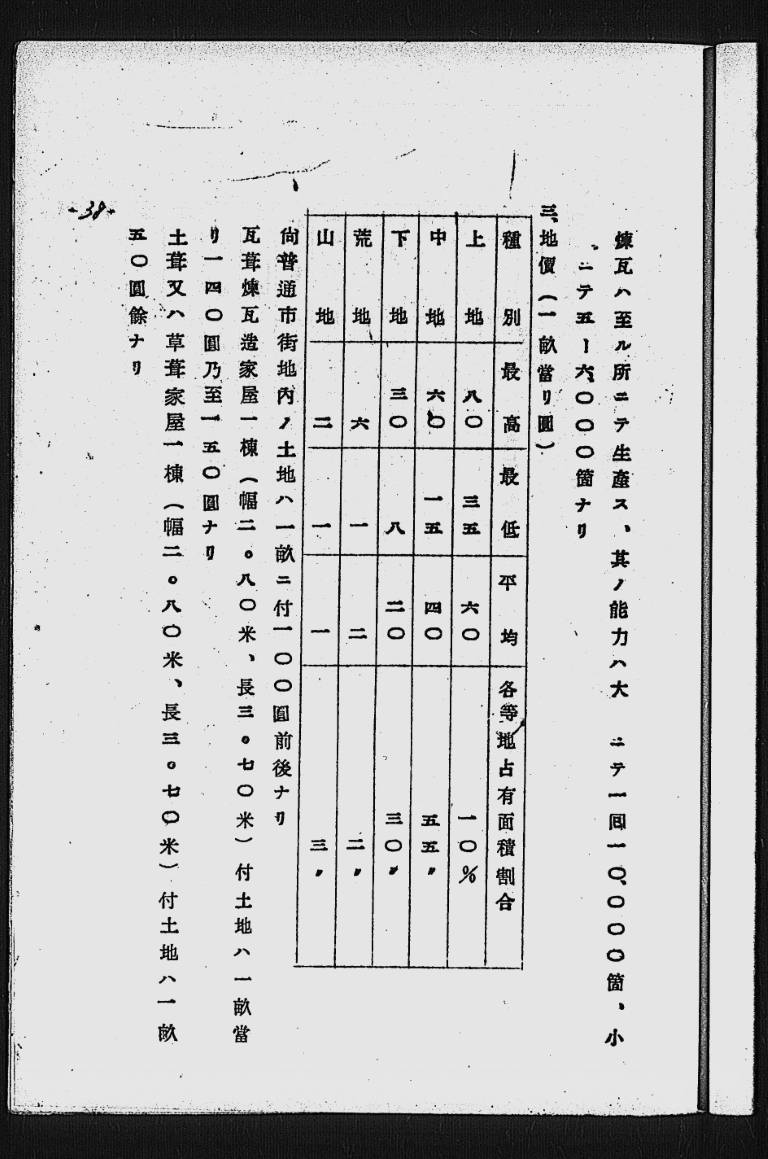 煉瓦ハ至ル所ニテ生產ス、其ノ能力ハ大 ニテ一回一〇、〇〇〇箇、小
ニテ五ー六、〇〇〇箇ナリ
三、地價（一畝當リ圓）
種別 最高 最低 平均 各等地占有面積割合
上地 八〇 三五 六〇 一〇％
中地 六〇 一五 四〇 五五〃
下地 三〇 八 二〇 三〇〃
荒地 六 一 二 二〃
山地 二 一 一 三〃
尙普通市街地內ノ土地ハ一畝ニ付一〇〇圓前後ナリ
瓦葺煉瓦造家屋一棟（幅二。八〇米、長三。七〇米）付土地ハ一畝當
リ一四〇圓乃至一五〇圓ナリ
土葺又ハ草葺家屋一棟（幅二。八〇米、長三。七〇米）付土地ハ一畝
五〇圓餘ナリ
-38-